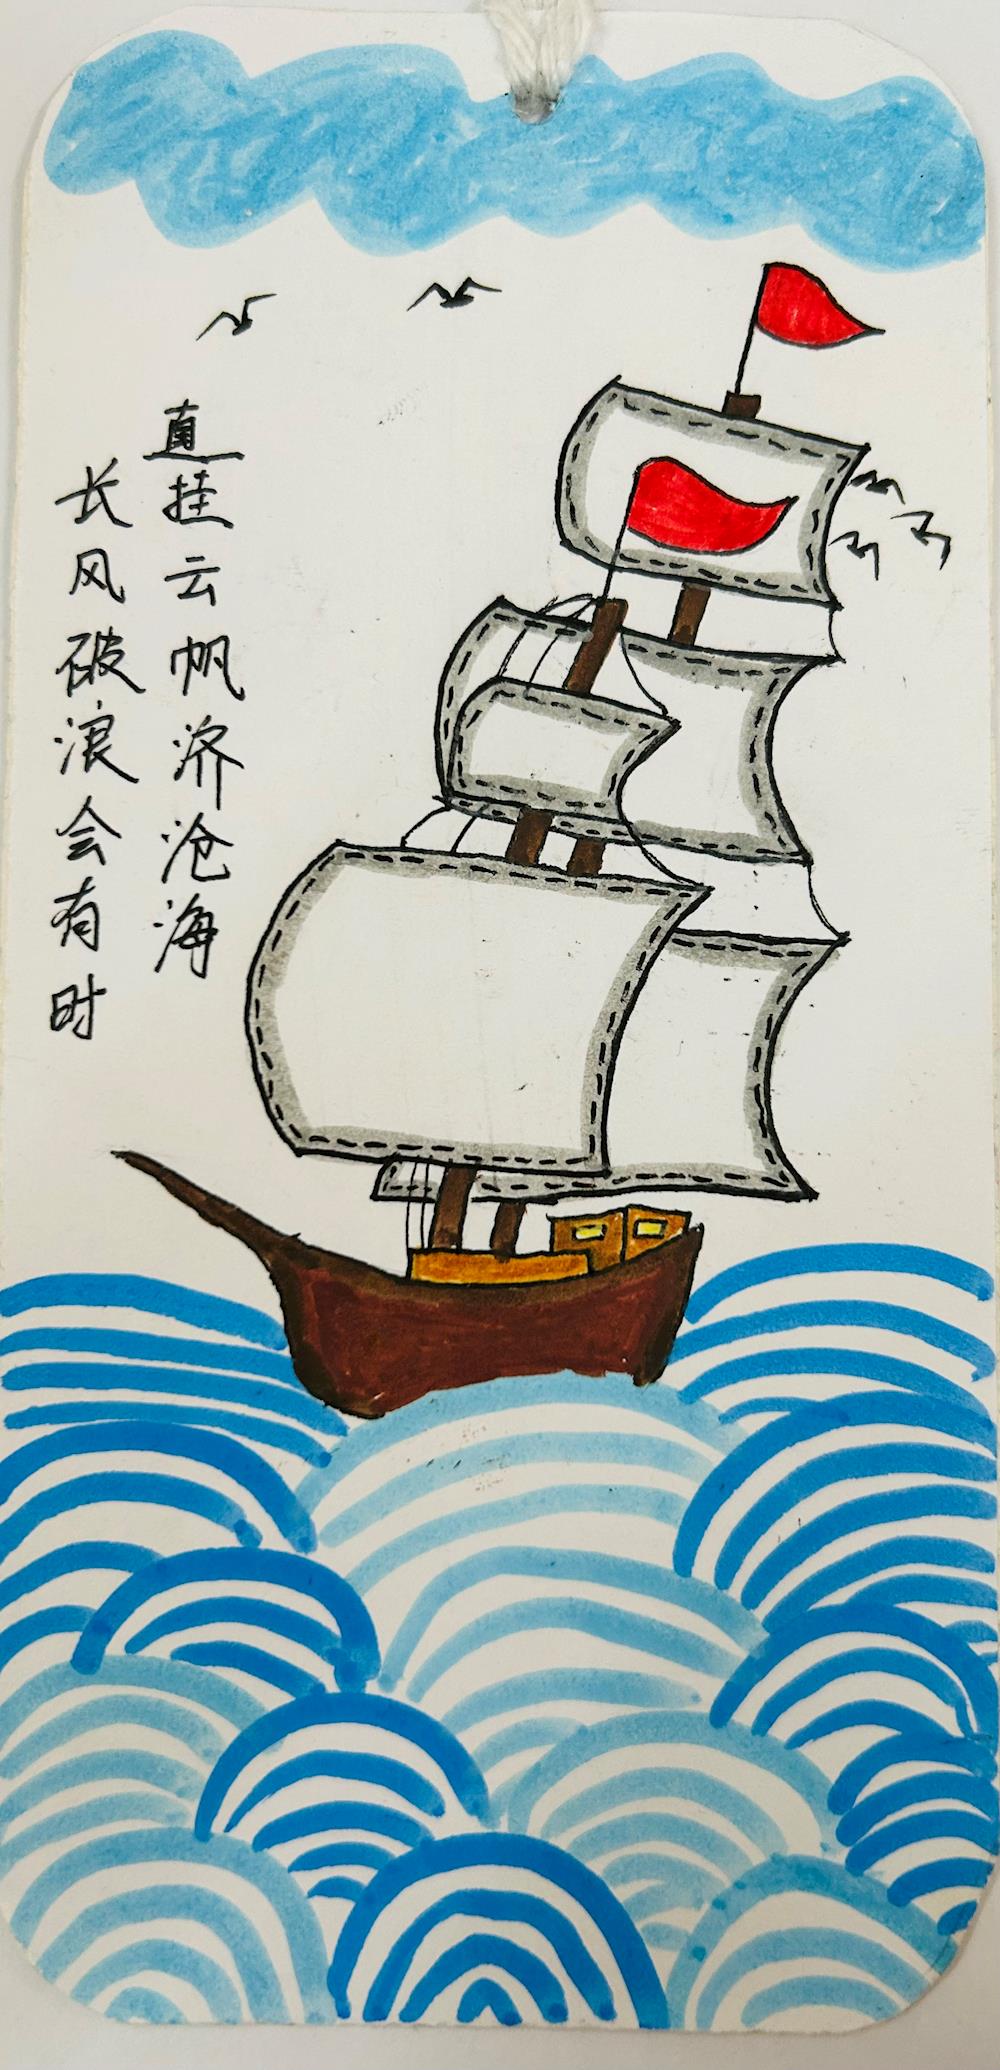 长风破浪会有时
直挂云帆济沧海